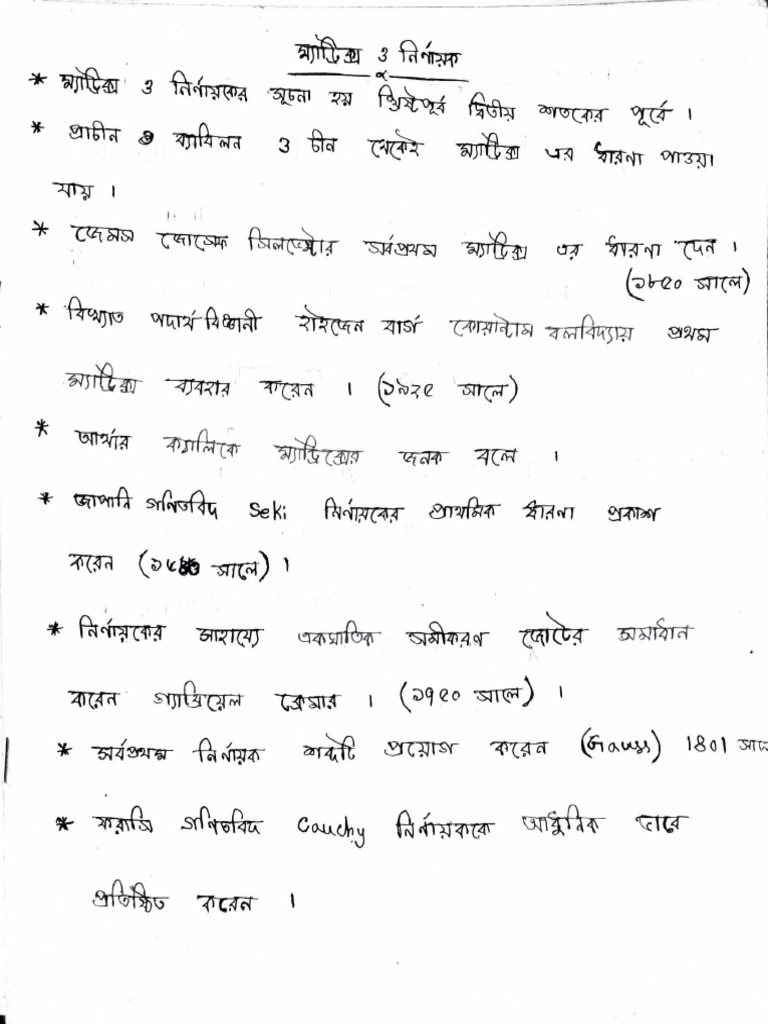 ম্যাট্রিক্স ও নির্ণায়ক
* ম্যাট্রিক্স ও নির্ণায়কের সূচনা হয় খ্রিষ্টপূর্ব দ্বিতীয় শতকের পূর্বে ।
* প্রাচীন ব্যাবিলন ও চীন থেকেই ম্যাট্রিক্স এর ধারনা পাওয়া
যায় ।
* জেমস জোসেফ সিলভেস্টার সর্বপ্রথম ম্যাট্রিক্স এর ধারনা দেন ।
(১৮৫০ সালে)
* বিখ্যাত পদার্থ বিজ্ঞানী হাইজেন বার্গ কোয়ান্টাম বলবিদ্যায় প্রথম
ম্যাট্রিক্স ব্যবহার করেন । (১৯২৫ সালে)
* আর্থার ক্যালিকে ম্যাট্রিক্সের জনক বলে ।
* জাপানি গনিতবিদ Seki নির্ণায়কের প্রাথমিক ধারনা প্রকাশ
করেন ( সালে) ।
* নির্ণায়কের সাহায্যে একঘাতিক সমীকরণ জোটের সমাধান
করেন গ্যাব্রিয়েল ক্রেমার । (১৭৫০ সালে) ।
* সর্বপ্রথম নির্ণায়ক শব্দটি প্রয়োগ করেন (Gauss) 1801 সালে
* ফরাসি গনিতবিদ Cauchy নির্ণায়ককে আধুনিক ভাবে
প্রতিষ্ঠিত করেন ।